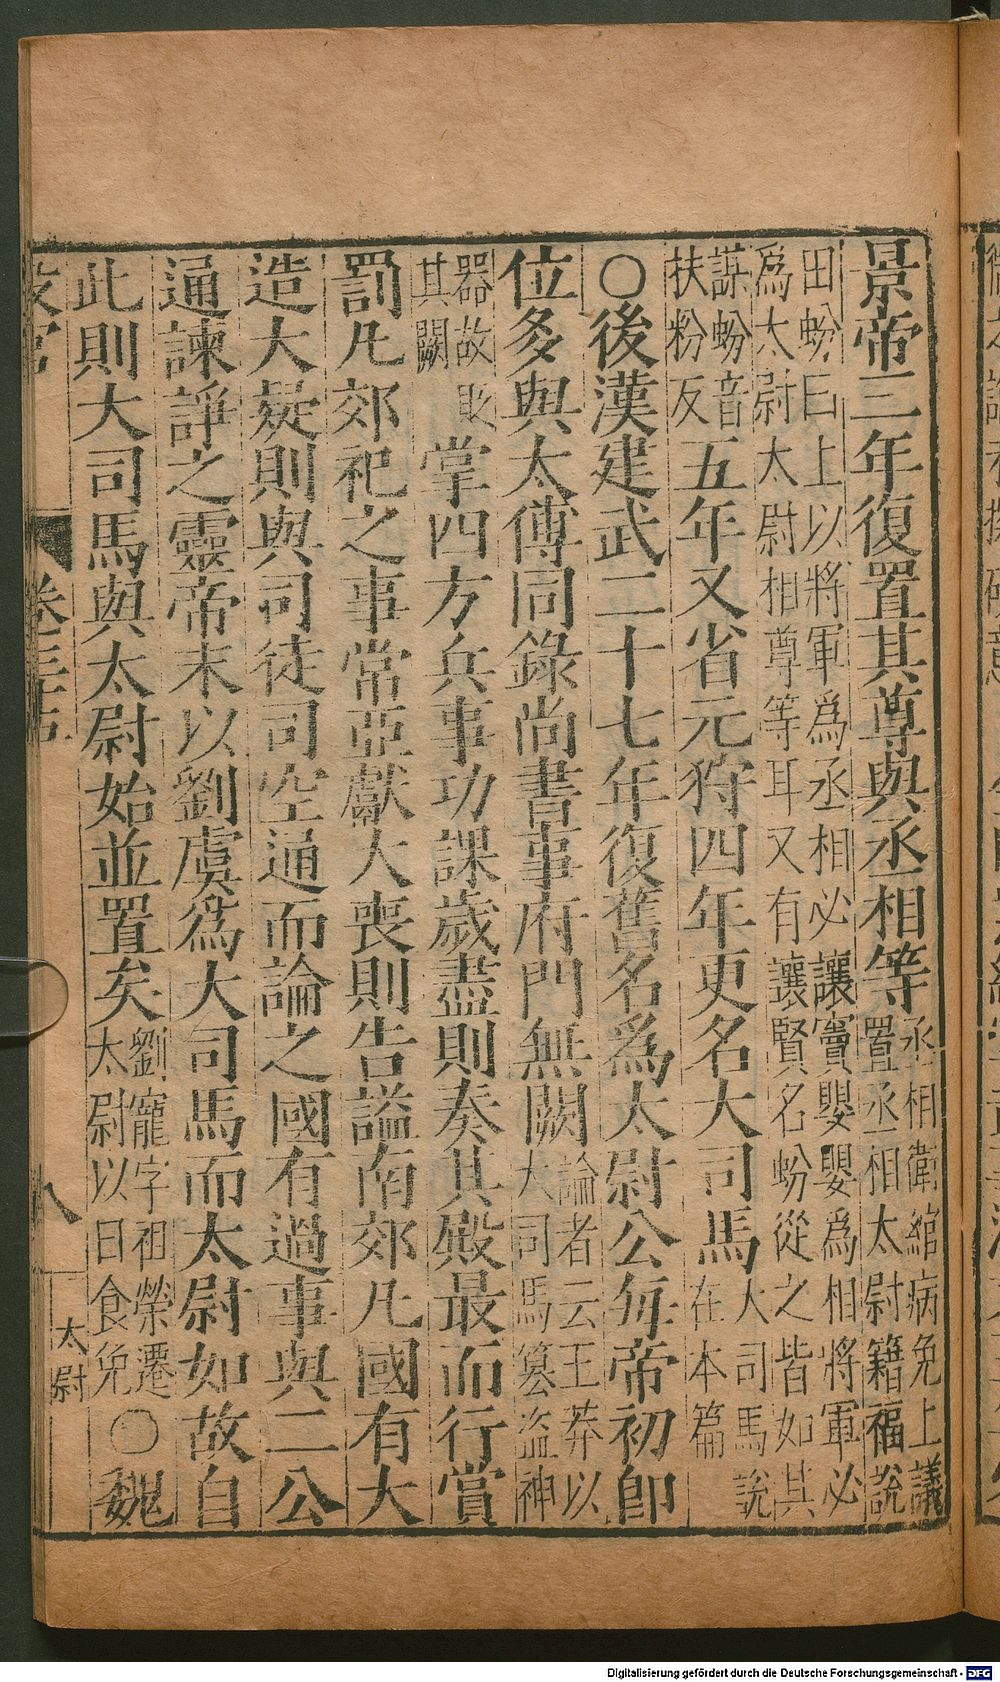 景帝三年復置其尊與丞相等丞相衛綰病免上議置丞相太尉籍福說
田蚡曰上以將軍爲丞相必讓竇嬰嬰爲相將軍必
爲太尉太尉相尊等耳又有讓賢名蚡從之皆如其
謀蚡音扶粉反五年又省元狩四年更名大司馬大司馬說在本篇
○後漢建武二十七年復舊名爲太尉公每帝初即
位多與太傅同錄尚書事府門無闕論者云王莽以大司馬篡盜神
器故貶其闕掌四方兵事功課歲盡則奏其殿最而行賞
罰凡郊祀之事常亞獻大喪則告謚南郊凡國有大
造大疑則與司徒司空通而論之國有過事與二公
通諫諍之靈帝末以劉虞爲大司馬而太尉如故自
此則大司馬與太尉始並置矣劉寵字祖榮遷太尉以日食免○魏
八 太尉
Digitalisierung gefördert durch die Deutsche Forschungsgemeinschaft - DFG